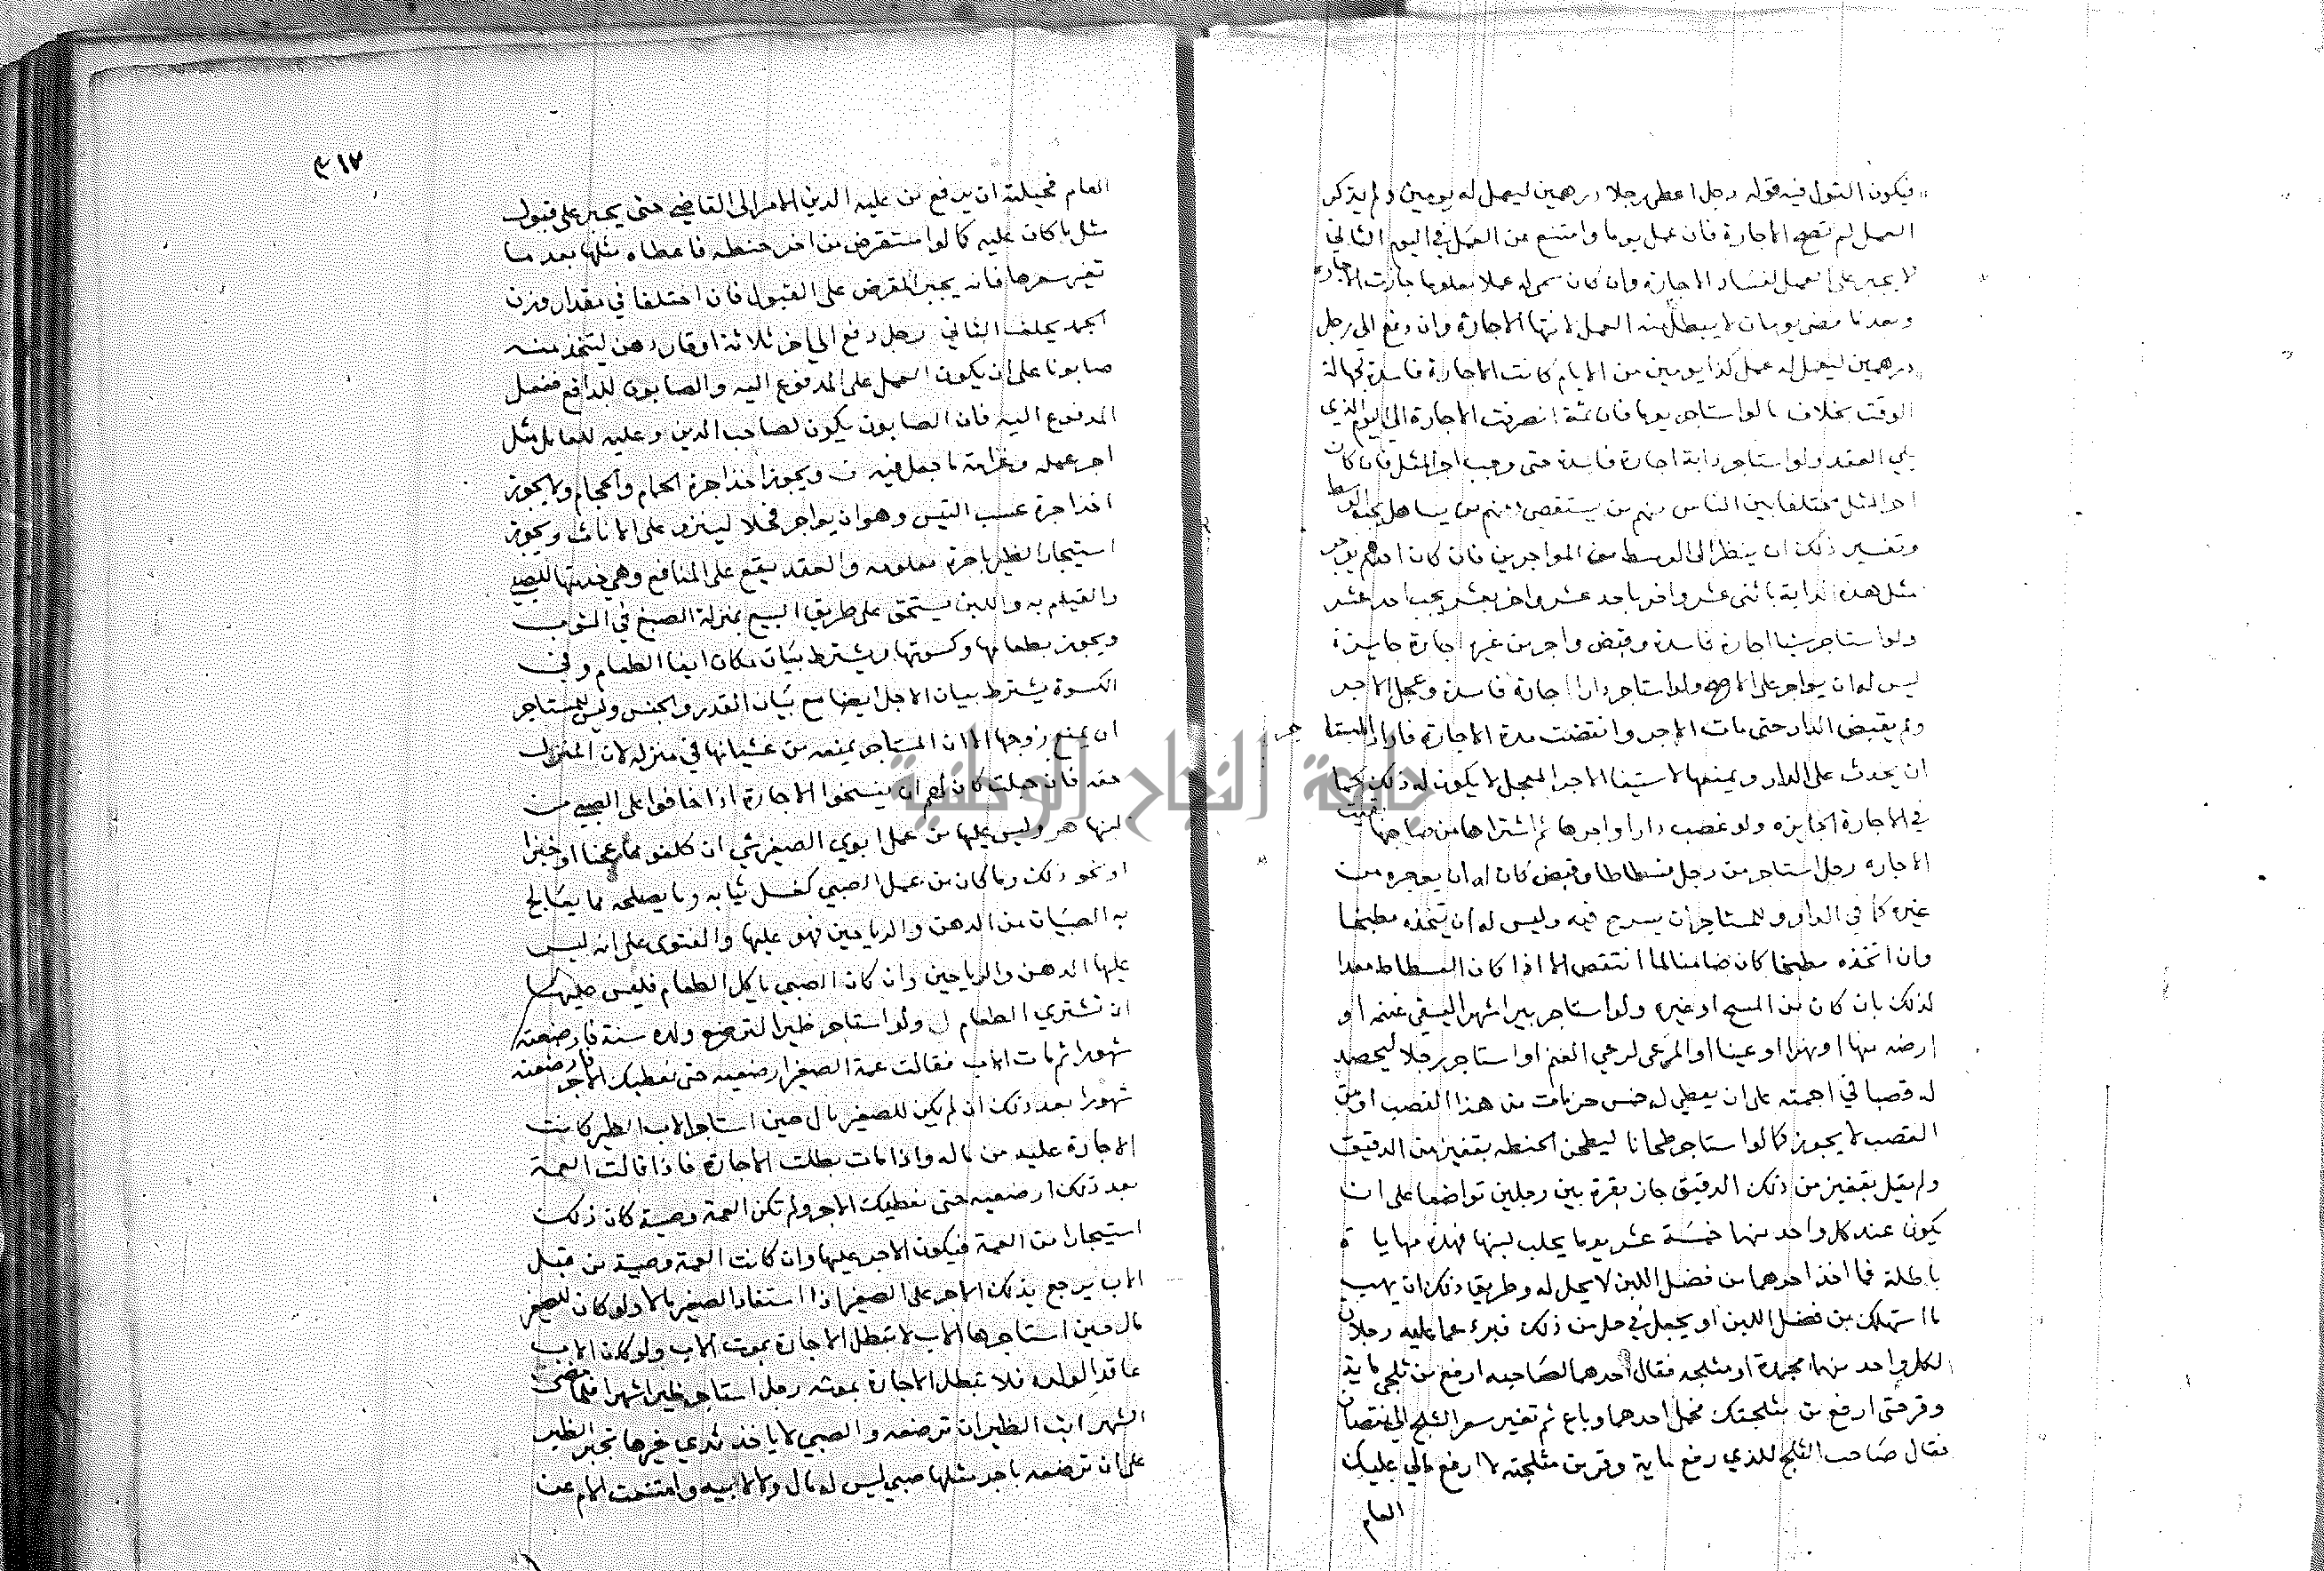 فيكون القول فيه قوله رجل اعطى رجلا درهمين ليعمل له يومين ولم يذكر
العمل لم تصح الاجارة فان عمل يوما وامتنع عن العمل في اليوم الثاني
لا يجبر على العمل لفساد الاجارة وان كان سمى له عملا معلوما جازت الاجارة
وبعدما مضى يومان لا يبطل منه العمل لانتهاء الاجارة وان دفع الى رجل
درهمين ليعمل له عمل كذا يومين من الايام كانت الاجارة فاسدة لجهالة
الوقت بخلاف ما لو استاجر يوما فان ثمة انصرفت الاجارة الى اليوم الذي
يلي العقد ولو استاجر دابة اجارة فاسدة حتى وجب اجر المثل فان كان
اجر المثل مختلفا بين الناس منهم من يستقصي ومنهم من يساهل يجب الوسط
وتفسير ذلك ان ينظر الى الوسط من المواجرين فان كان احدهم يوجر
مثل هذه الدابة باثنى عشر واخر باحد عشر واخر بعشر يجب احد عشر
ولو استاجر شيا اجارة فاسدة وقبض واجر من غيره اجارة جايزة
ليس له ان يواجر على الاصح ولو استاجر دارا اجارة فاسدة وعجل الاجر
ولم يقبض الدار حتى مات الاجر وانقضت مدة الاجارة فاراد المستاجر
ان يحدث على الدار ويمنعها لاستيفا الاجر المعجل لا يكون له ذلك كما
في الاجارة الجايزه ولو غصب دارا واجرها ثم اشتراها من صاحبها
الاجاره رجل استاجر من رجل فسطاطا وقبض كان له ان يوجره من
غيره كما في الدار وللمستاجر ان يسرج فيه وليس له ان يتخذه مطبخا
وان اتخذه مطبخا كان ضامنا لما انتقص الا اذا كان الفسطاط معدا
لذلك بان كان من المسح او غيره ولو استاجر بيرا شهرا ليسقي غنمه او
ارضه منها او نهرا او عينا او المرعى لرعي الغنم او استاجر رجلا ليحصد
له قصبا في اجمته على ان يعطي له خمس حزمات من هذا القصب او من
القصب لا يجوز كما لو استاجر طحانا ليطحن الحنطه بقفيز من الدقيق
ولم يقل بقفيز من ذلك الدقيق جاز بقرة بين رجلين تواضعا على ان
يكون عند كل واحد منهما خمسة عشر يوما يحلب لبنها فهذه مهاياة
باطلة فما اخذ احدهما من فضل اللبن لا يحل له وطريق ذلك ان يهب
ما استهلك من فضل اللبن او يجعل في حل من ذلك فبرئ عما عليه رجلان
لكل واحد منهما مجمدة او مثلجه فقال احدهما لصاحبه ارفع من ثلجي ماية
وقر حتى ارفع من مثلجتك فحمل احدهما وباع ثم تغير سعر الثلج الى نقصان
فقال صاحب الثلج للذي رفع ماية وقر من مثلجته لا ارفع مالي عليك
العام
٤١٧
العام فحيلته ان يرفع من عليه الدين الامر الى القاضي حتى يجبر على قبول
مثل ما كان عليه كما لو استقرض من اخر حنطه فاعطاه مثلها بعد ما
تغير سعرها فانه يجبر المقرض على القبول فان اختلفا في مقدار وزن
الجمد يحلف الثاني رجل دفع الى اخر ثلاثة اوقار دهن ليتخذ منه
صابونا على ان يكون العمل على المدفوع اليه والصابون للدافع ففعل
المدفوع اليه فان الصابون يكون لصاحب الدهن وعليه للعامل مثل
اجر عمله وغرامة ما جعل فيه ف ويجوز اخذ اجرة الحمام والحجام ولا يجوز
اخذ اجرة عسب التيس وهو ان يواجر فحلا لينزو على الاناث ويجوز
استيجار الظير باجرة معلومه والعقد يقع على المنافع وهي خدمتها للصبي
والقيام به واللبن يستحق على طريق البيع بمنزلة الصبغ في الثوب
ويجوز بطعامها وكسوتها ويشترط بيان مكان ايفا الطعام وفي
الكسوة يشترط بيان الاجل ايضا مع بيان القدر والجنس وليس للمستاجر
ان يمنع زوجها الا ان المستاجر يمنعه من غشيانها في منزله لان المنزل
حقه فان حبلت كان لهم ان يفسخوا الاجارة اذا خافوا على الصبي من
لبنها هر وليس عليها من عمل ابوي الصغير شي ان كلفوها عجنا او خبزا
او نحو ذلك وما كان من عمل الصبي كغسل ثيابه وما يصلحه مما يعالج
به الصبيان من الدهن والرياحين فهو عليها والفتوى على انه ليس
عليها الدهن والرياحين وان كان الصبي ياكل الطعام فليس عليها
ان تشتري الطعام ل ولو استاجر ظيرا لترضع ولده سنة فارضعته
شهورا ثم مات الاب فقالت عمة الصغير ارضعيه حتى نعطيك الاجر فارضعته
شهورا بعد ذلك ان لم يكن للصغير مال حين استاجر الاب الظير كانت
الاجارة عليه من ماله واذا مات بطلت الاجارة فاذا قالت العمة
بعد ذلك ارضعيه حتى نعطيك الاجر ولم تكن العمة وصية كان ذلك
استيجارا من العمة فيكون الاجر عليها وان كانت العمة وصية من قبل
الاب يرجع بذلك الاجر على الصغير اذا استفاد الصغير مالا ولو كان للصغير
مال حين استاجرها الاب لا تبطل الاجارة بموت الاب ولو كان الاب
عاقدا لولده فلا تبطل الاجارة بموته رجل استاجر ظيرا شهرا فلما مضى
الشهر ابت الظير ان ترضعه والصبي لا ياخذ ثدي غيرها تجبر الظير
على ان ترضعه باجر مثلها صبي ليس له مال ولا لابيه وامتنعت الام عن
جامعة النجاح الوطنية